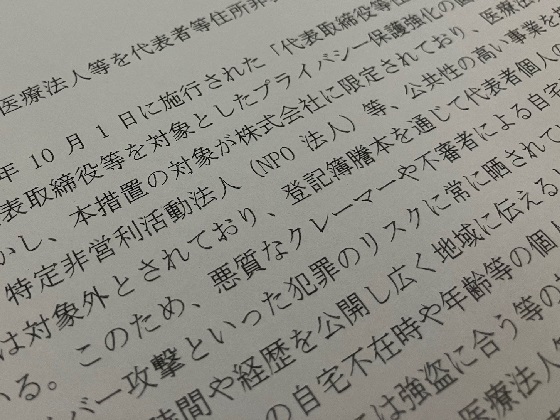 医療法人等を代表者等住所非
年 10 月 1 日に施行された「代表取締役等住
表取締役等を対象としたプライバシー保護強化の
かし、本措置の対象が株式会社に限定されており、医療法
特定非営利活動法人（NPO 法人）等、公共性の高い事業を
は対象外とされており、登記簿謄本を通じて代表者個人の
いる。このため、悪質なクレーマーや不審者による自宅
バー攻撃といった犯罪のリスクに常に晒されて
時間や経歴を公開し広く地域に伝える
の自宅不在時や年齢等の個
は強盗に合う等の
医療法人